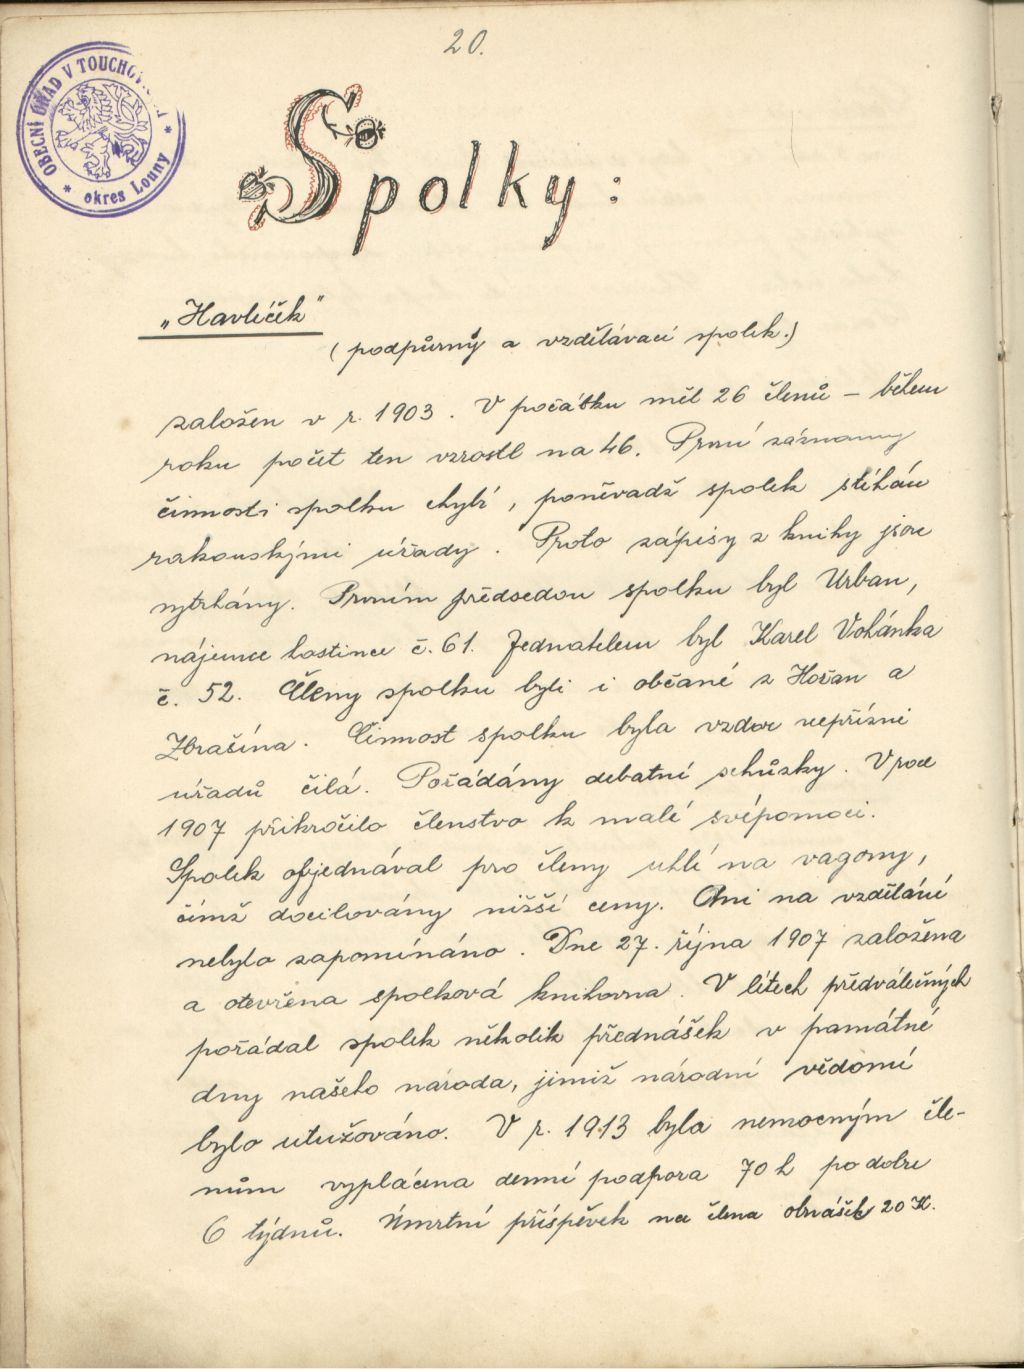 20.
OBECNÍ ÚŘAD V TOUCHO
* okres Louny *
Spolky:
„Havlíček"
(podpůrný a vzdělávací spolek.)
založen v r. 1903. V počátku měl 26 členů – během
roku počet ten vzrostl na 46. První záznamy
činnosti spolku chybí, poněvadž spolek stíhán
rakouskými úřady. Proto zápisy z knihy jsou
vytrhány. Prvním předsedou spolku byl Urban,
nájemce hostince č. 61. Jednatelem byl Karel Vohánka
č. 52. Členy spolku byli i občané z Hořan a
Zbrašína. Činnost spolku byla vzdor nepřízni
úřadů čilá. Pořádány debatní schůzky. V roce
1907 přikročilo členstvo k malé svépomoci.
Spolek objednával pro členy uhlí na vagony,
čímž docilovány nižší ceny. Ani na vzdělání
nebylo zapomínáno. Dne 27. října 1907 založena
a otevřena spolková knihovna. V létech předválečných
pořádal spolek několik přednášek v památné
dny našeho národa, jimiž národní vědomí
bylo utužováno. V r. 1913 byla nemocným čle-
nům vyplácena denní podpora 70 h po dobu
6 týdnů. Úmrtní příspěvek na člena obnášel 20 K.